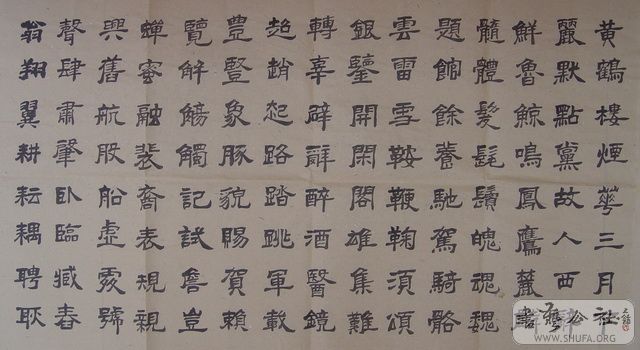 黄鶴樓煙華三月
麗默點黨故人西
鮮魯鯨鳴鳳鷹麓
髓體髮髦鬢魄魂魏
題館餘養馳駕騎骼
雲雷雪鞍鞭鞠須頌
銀鑒開閑閣雄集難
轉辜辟辭醉酒醫鏡
超趙起路踏跳軍載
豊豎象豚貌賜賀賴
覽解觴觸記試詹豈
蟬蜜融裴裔表規親
興舊航股船虚號
聲肆肅肇臥臨臧舂
翁翔翼耕耘耦聘耿
書法公社
WWW.SHUFA.ORG